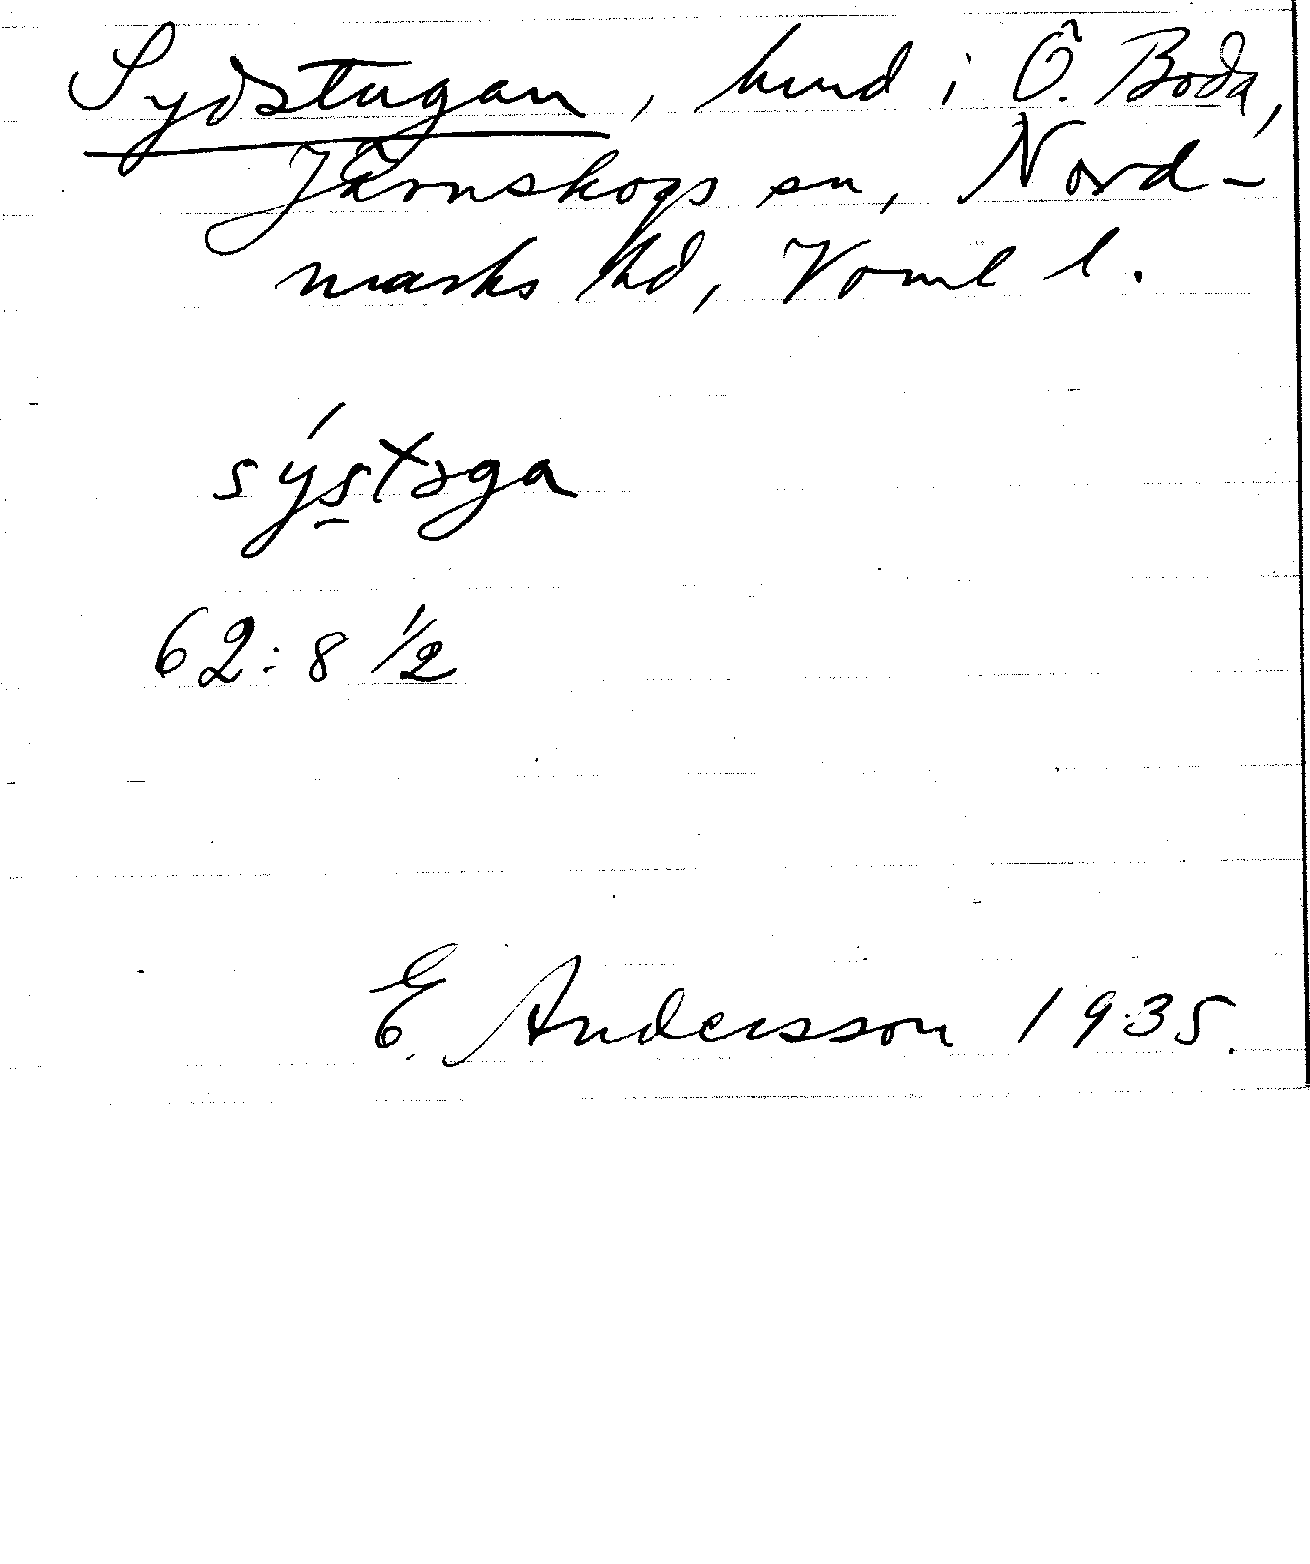 Sydstugan, hmd i Ö. Boda,
Järnskogs sn, Nord-
marks hd, Värml l.
sýstəga
62:8 1/2
E. Andersson 1935.